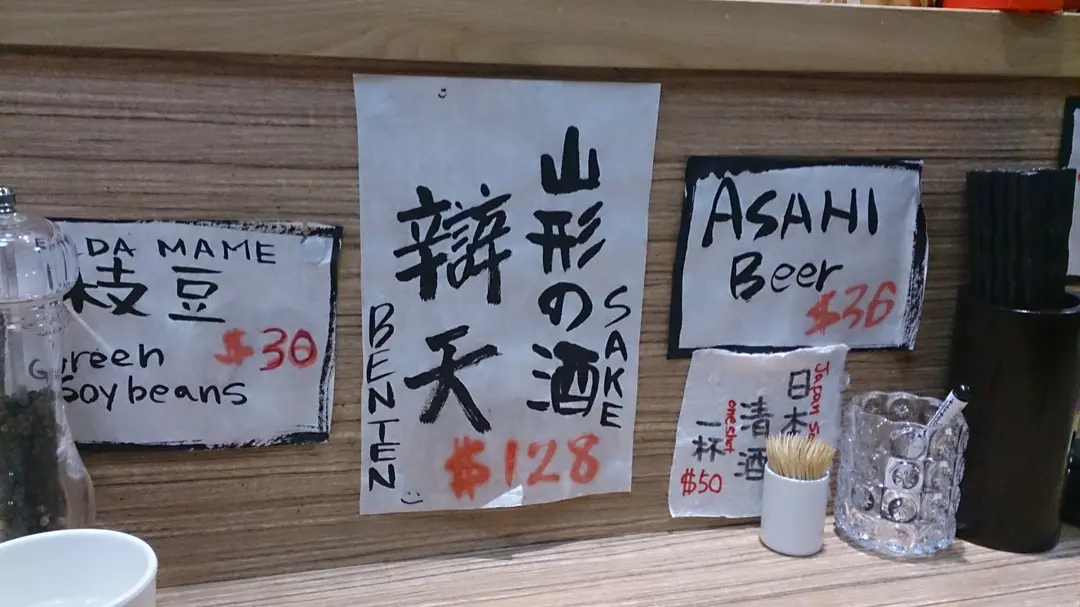 DA MAME
枝豆
$30
Green
Soybeans
山形の酒
SAKE
辯天
BENTEN
$128
ASAHI
Beer
$36
Japan
日本
清酒
one shot
一杯
$50